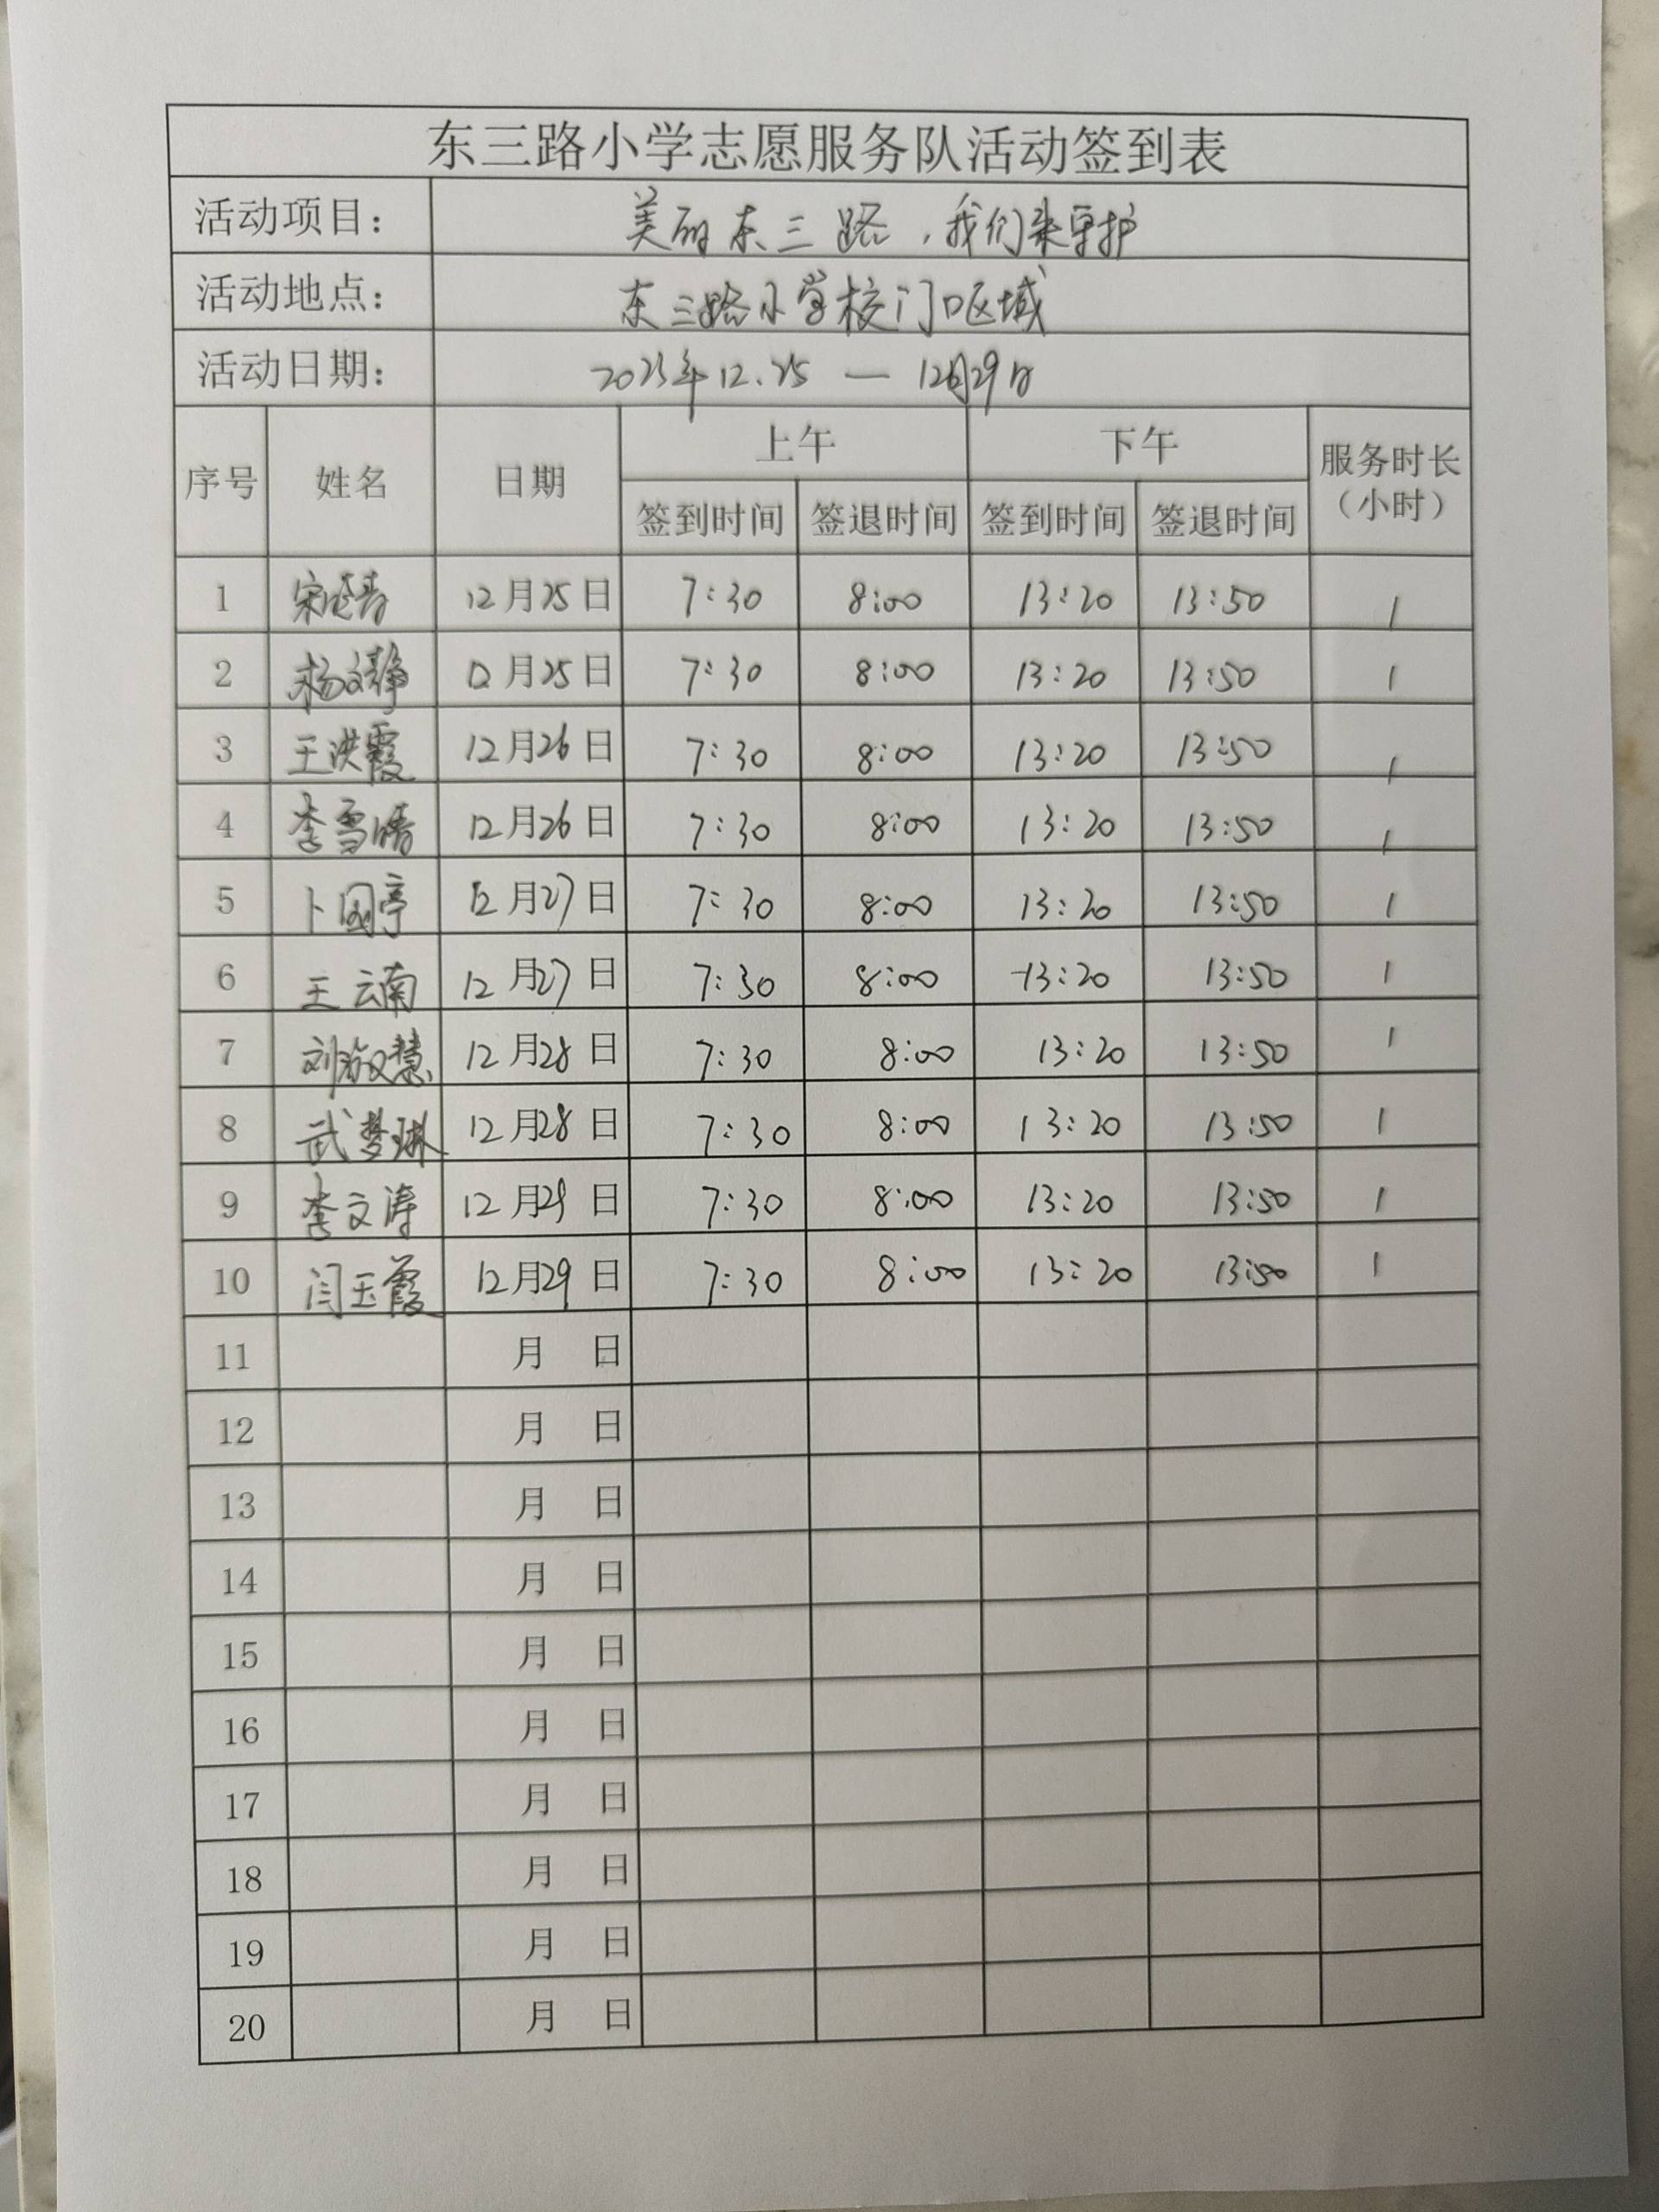 东三路小学志愿服务队活动签到表
活动项目： 美丽东三路，我们来守护
活动地点： 东三路小学校门口区域
活动日期： 2023年12.25 — 12月29日
序号 姓名 日期 上午 下午 服务时长（小时）
签到时间 签退时间 签到时间 签退时间
1 宋 12月25日 7:30 8:00 13:20 13:50 1
2 杨文静 12月25日 7:30 8:00 13:20 13:50 1
3 王洪霞 12月26日 7:30 8:00 13:20 13:50 1
4 李雪晴 12月26日 7:30 8:00 13:20 13:50 1
5 卜国亭 12月27日 7:30 8:00 13:20 13:50 1
6 王云南 12月27日 7:30 8:00 13:20 13:50 1
7 刘敏慧 12月28日 7:30 8:00 13:20 13:50 1
8 武梦琳 12月28日 7:30 8:00 13:20 13:50 1
9 李文涛 12月29日 7:30 8:00 13:20 13:50 1
10 闫玉霞 12月29日 7:30 8:00 13:20 13:50 1
11 月 日
12 月 日
13 月 日
14 月 日
15 月 日
16 月 日
17 月 日
18 月 日
19 月 日
20 月 日